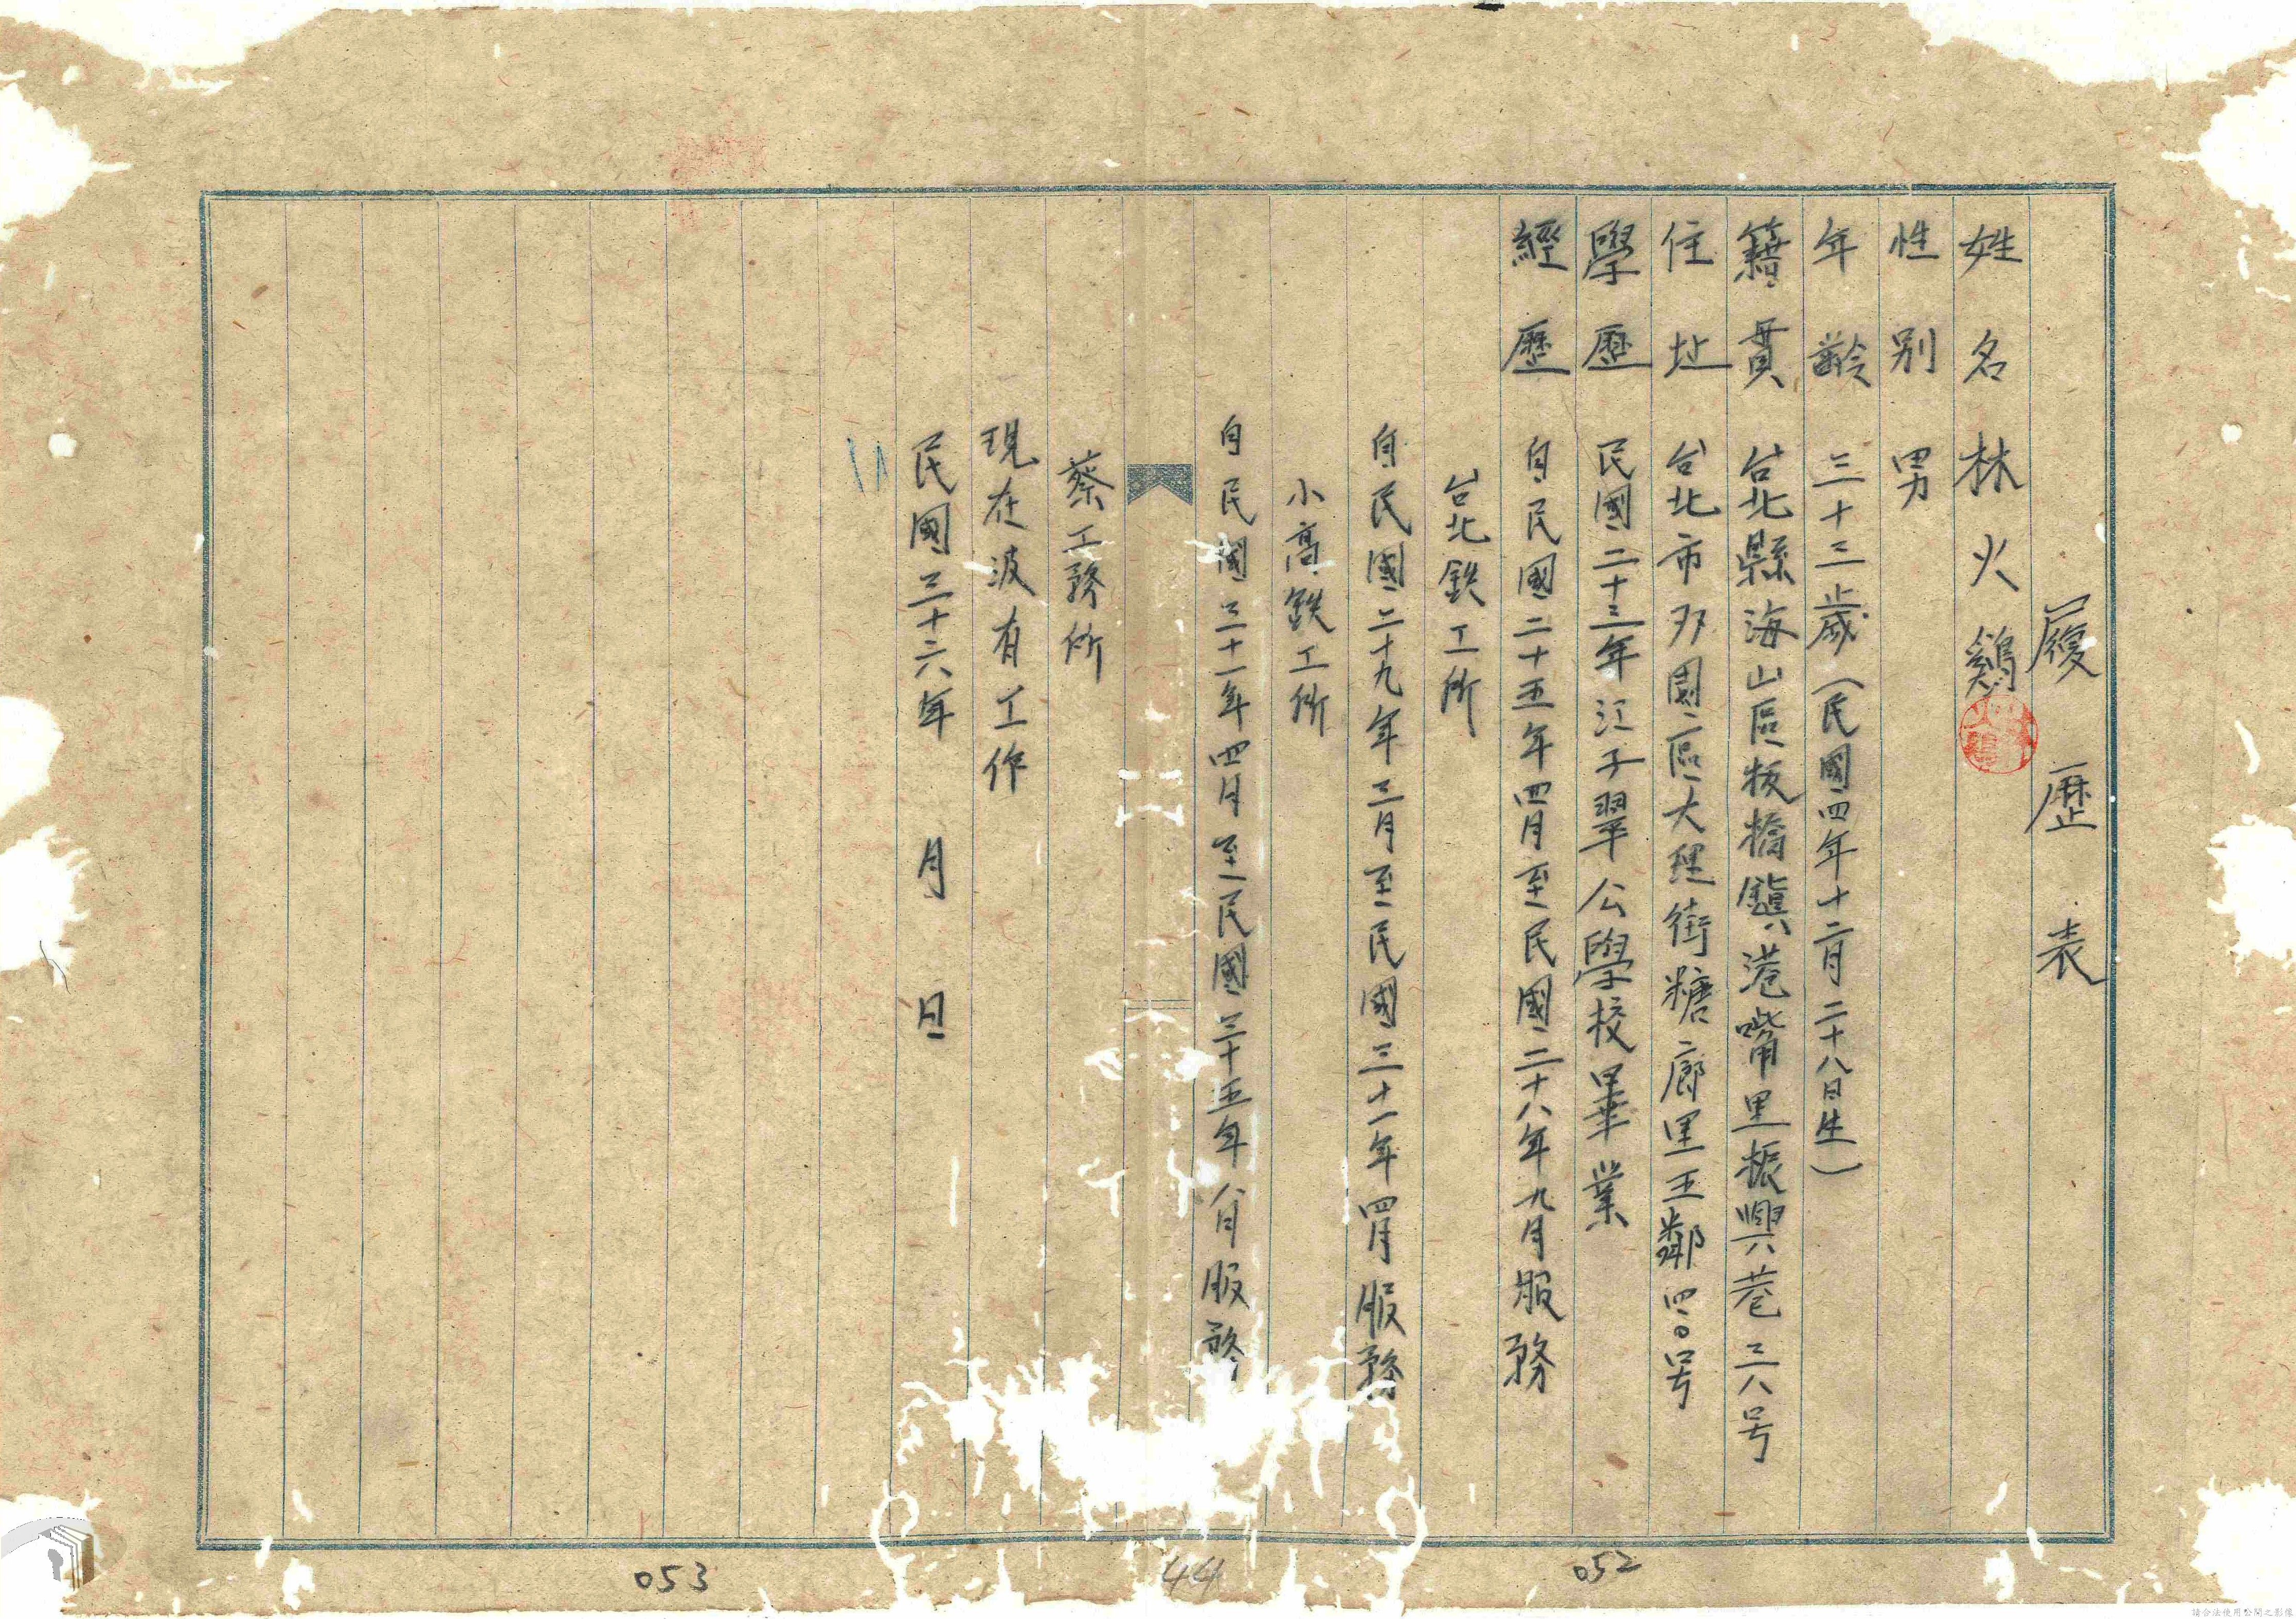 履歷表
姓名 林火鷄
性別 男
年齡 三十三歲（民國四年十二月二十八日生）
籍貫 台北縣海山區板橋鎭港嘴里振興巷三八号
住址 台北市双園區大理街糖廍里五鄰四〇号
學歷 民國二十三年江子翠公學校畢業
經歷 自民國二十五年四月至民國二十八年九月服務
台北鉄工所
自民國二十九年三月至民國三十一年四月服務
小高鉄工所
自民國三十一年四月至民國三十五年八月服務
蔡工務所
現在波有工作
民國三十六年 月 日
053
44
052
請合法使用公開之影像